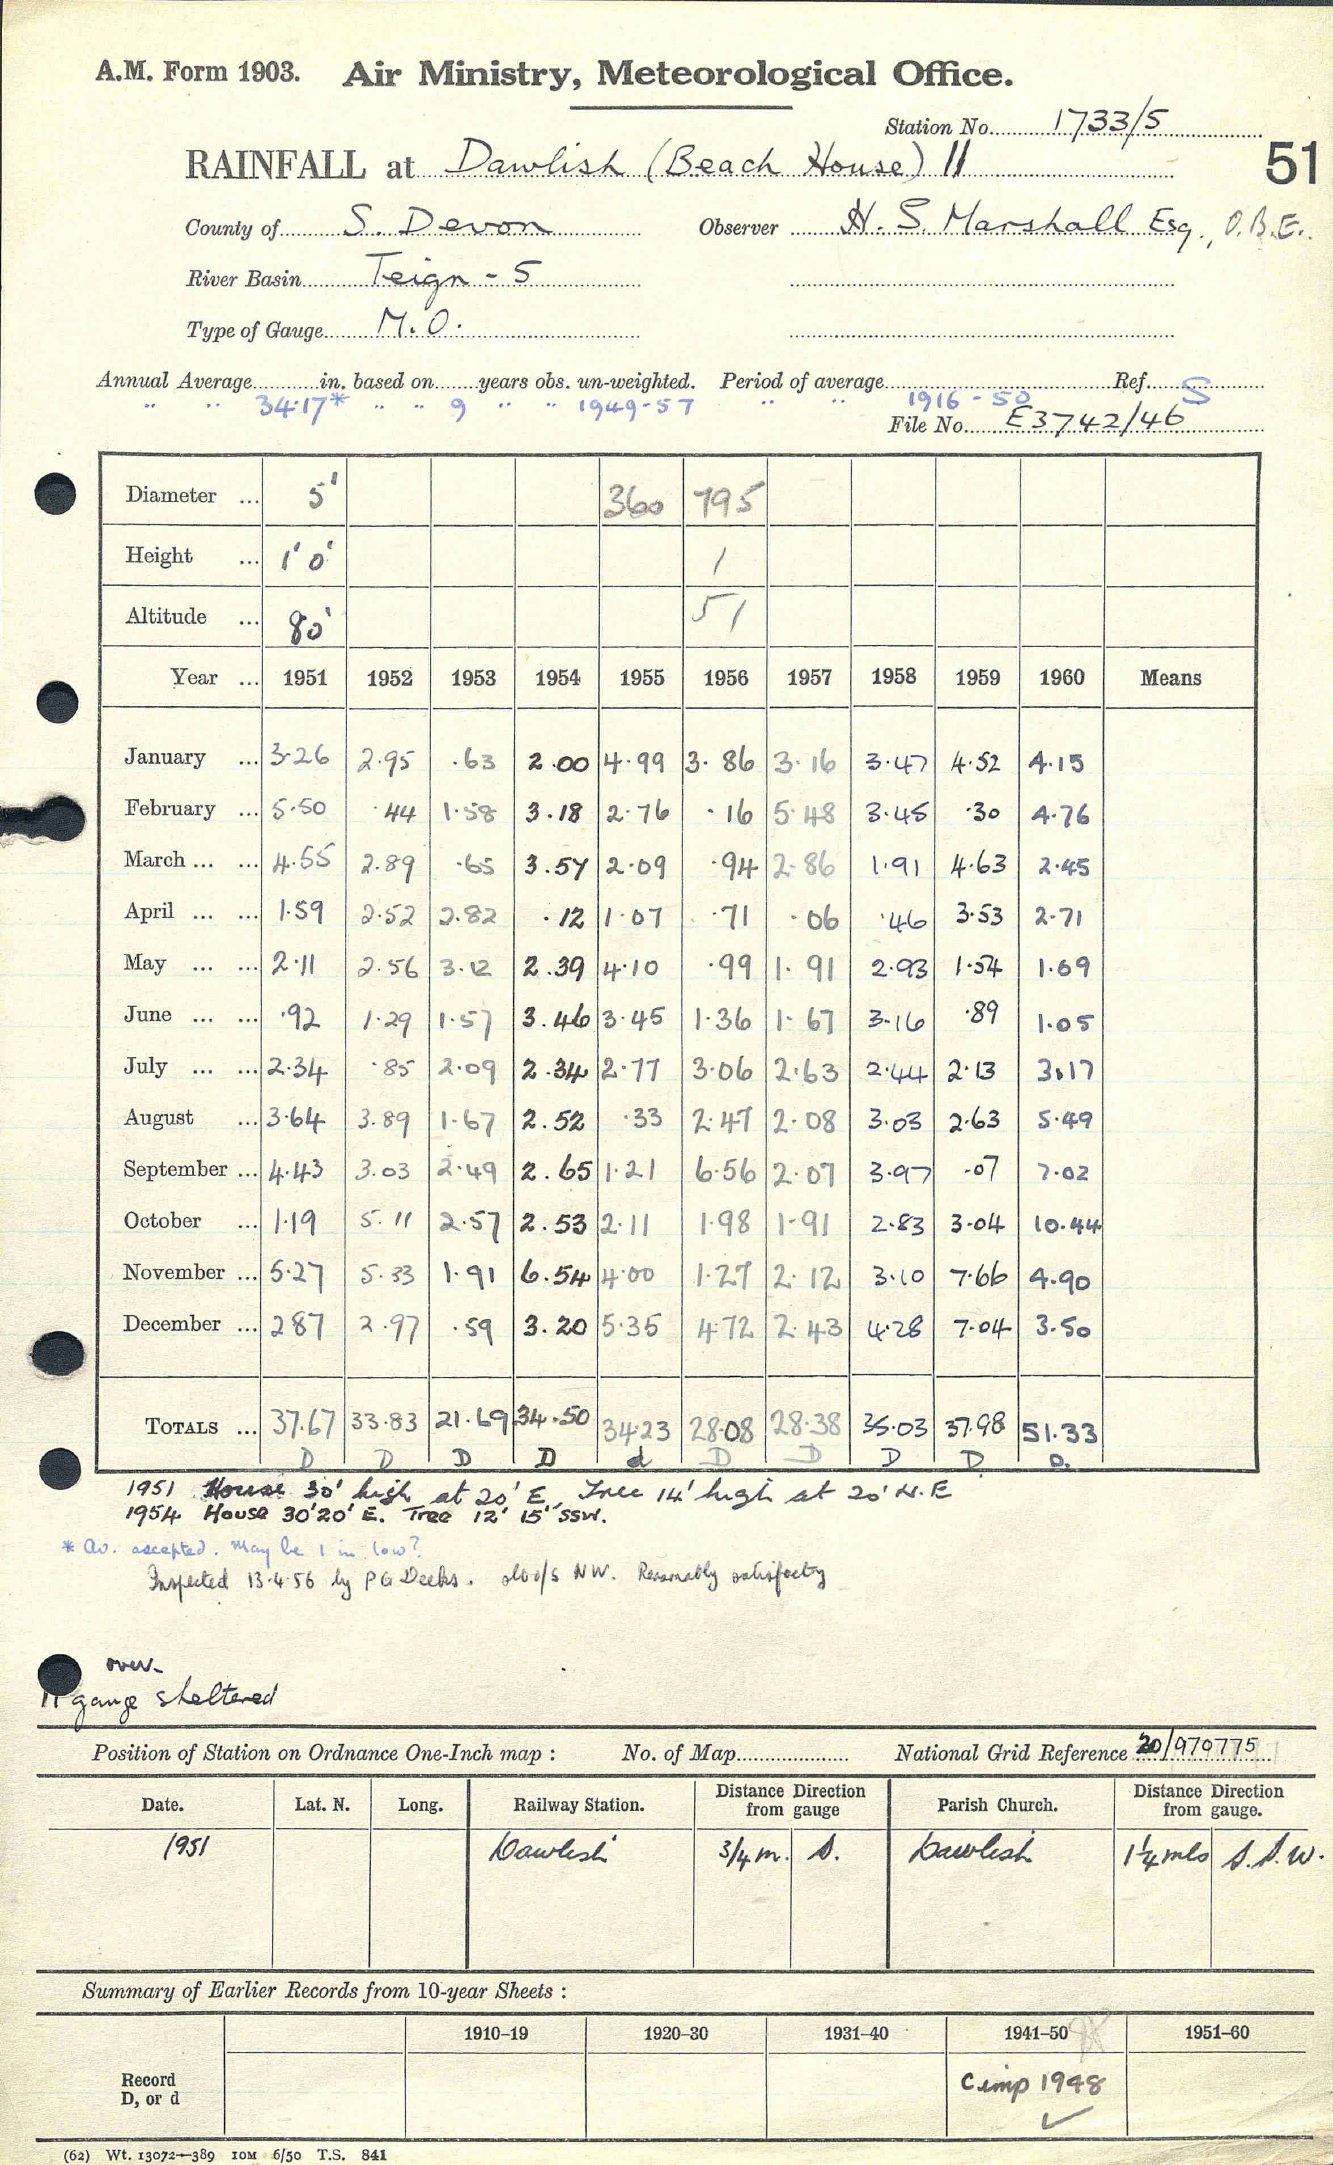 A.M. Form 1903. Air Ministry, Meteorological Office.
Station No. 1733/5
RAINFALL at Dawlish (Beach House) 11
51
County of S. Devon Observer H. S. Marshall Esq., O.B.E.
River Basin Teign - 5
Type of Gauge M.O.
Annual Average in. based on years obs. un-weighted. Period of average Ref. S
" " 34.17* " " 9 " " 1949-57 " " 1916-50
File No. E3742/46
Diameter ... 5" 360 795
Height ... 1' 0" 1
Altitude ... 80' 51
Year ... 1951 1952 1953 1954 1955 1956 1957 1958 1959 1960 Means
January ... 3.26 2.95 .63 2.00 4.99 3.86 3.16 3.47 4.52 4.15
February ... 5.50 .44 1.58 3.18 2.76 .16 5.48 3.45 .30 4.76
March ... ... 4.55 2.89 .65 3.57 2.09 .94 2.86 1.91 4.63 2.45
April ... ... 1.59 2.52 2.82 .12 1.07 .71 .06 .46 3.53 2.71
May ... ... 2.11 2.56 3.12 2.39 4.10 .99 1.91 2.93 1.54 1.69
June ... ... .92 1.29 1.57 3.46 3.45 1.36 1.67 3.16 .89 1.05
July ... ... 2.34 .85 2.09 2.34 2.77 3.06 2.63 2.44 2.13 3.17
August ... 3.64 3.89 1.67 2.52 .33 2.47 2.08 3.03 2.63 5.49
September ... 4.43 3.03 2.49 2.65 1.21 6.56 2.07 3.97 .07 7.02
October ... 1.19 5.11 2.57 2.53 2.11 1.98 1.91 2.83 3.04 10.44
November ... 5.27 5.33 1.91 6.54 4.00 1.27 2.12 3.10 7.66 4.90
December ... 2 87 2.97 .59 3.20 5.35 4.72 2.43 4.28 7.04 3.50
TOTALS ... 37.67 33.83 21.69 34.50 34.23 28.08 28.38 35.03 37.98 51.33
D D D D d D D D D D.
1951 House 30' high at 20' E, Tree 14' high at 20' N.E
1954 House 30' 20' E. Tree 12' 15' SSW.
* Av. accepted. May be 1 in low?
Inspected 13.4.56 by P G Deeks. NW. Reasonably satisfactory
over.
gauge sheltered
Position of Station on Ordnance One-Inch map : No. of Map National Grid Reference 20/970775
Date. Lat. N. Long. Railway Station. Distance from gauge Direction Parish Church. Distance from gauge. Direction
1951 Dawlish 3/4 m. S. Dawlish 1¼ mls S.S.W.
Summary of Earlier Records from 10-year Sheets :
1910-19 1920-30 1931-40 1941-50 1951-60
Record
D, or d
C imp 1948
(62) Wt. 13072—389 10M 6/50 T.S. 841